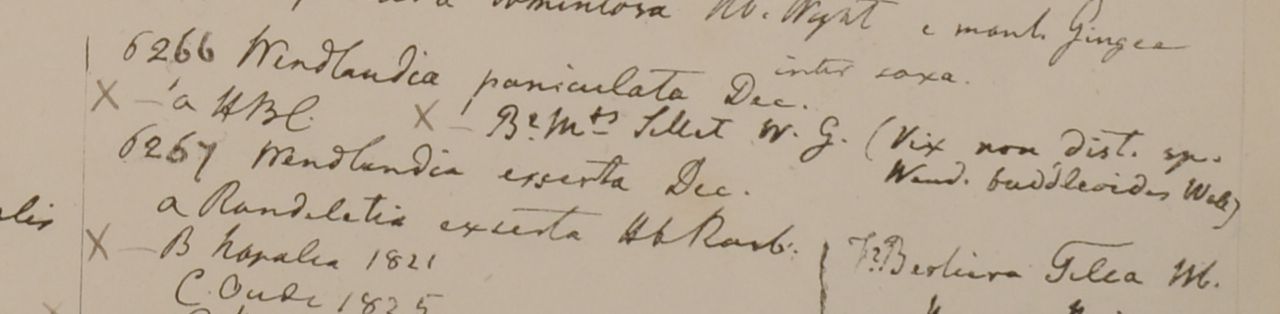 tomentosa Hb. Wight e mont. Gingee
inter saxa.
6266 Wendlandia paniculata Dec.
X — a HBC. X — B? Mts Sillet W. G. (Vix non dist. sp.
Wend. buddleoides Wall)
6267 Wendlandia exserta Dec.
a Rondeletia exserta Hb Roxb.
alis
X — B Napalia 1821
C. Oude 1825
Berliera Tilea W.